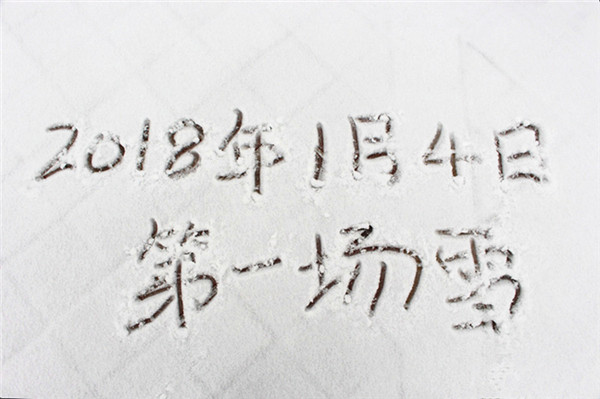 2018年1月4日
第一场雪